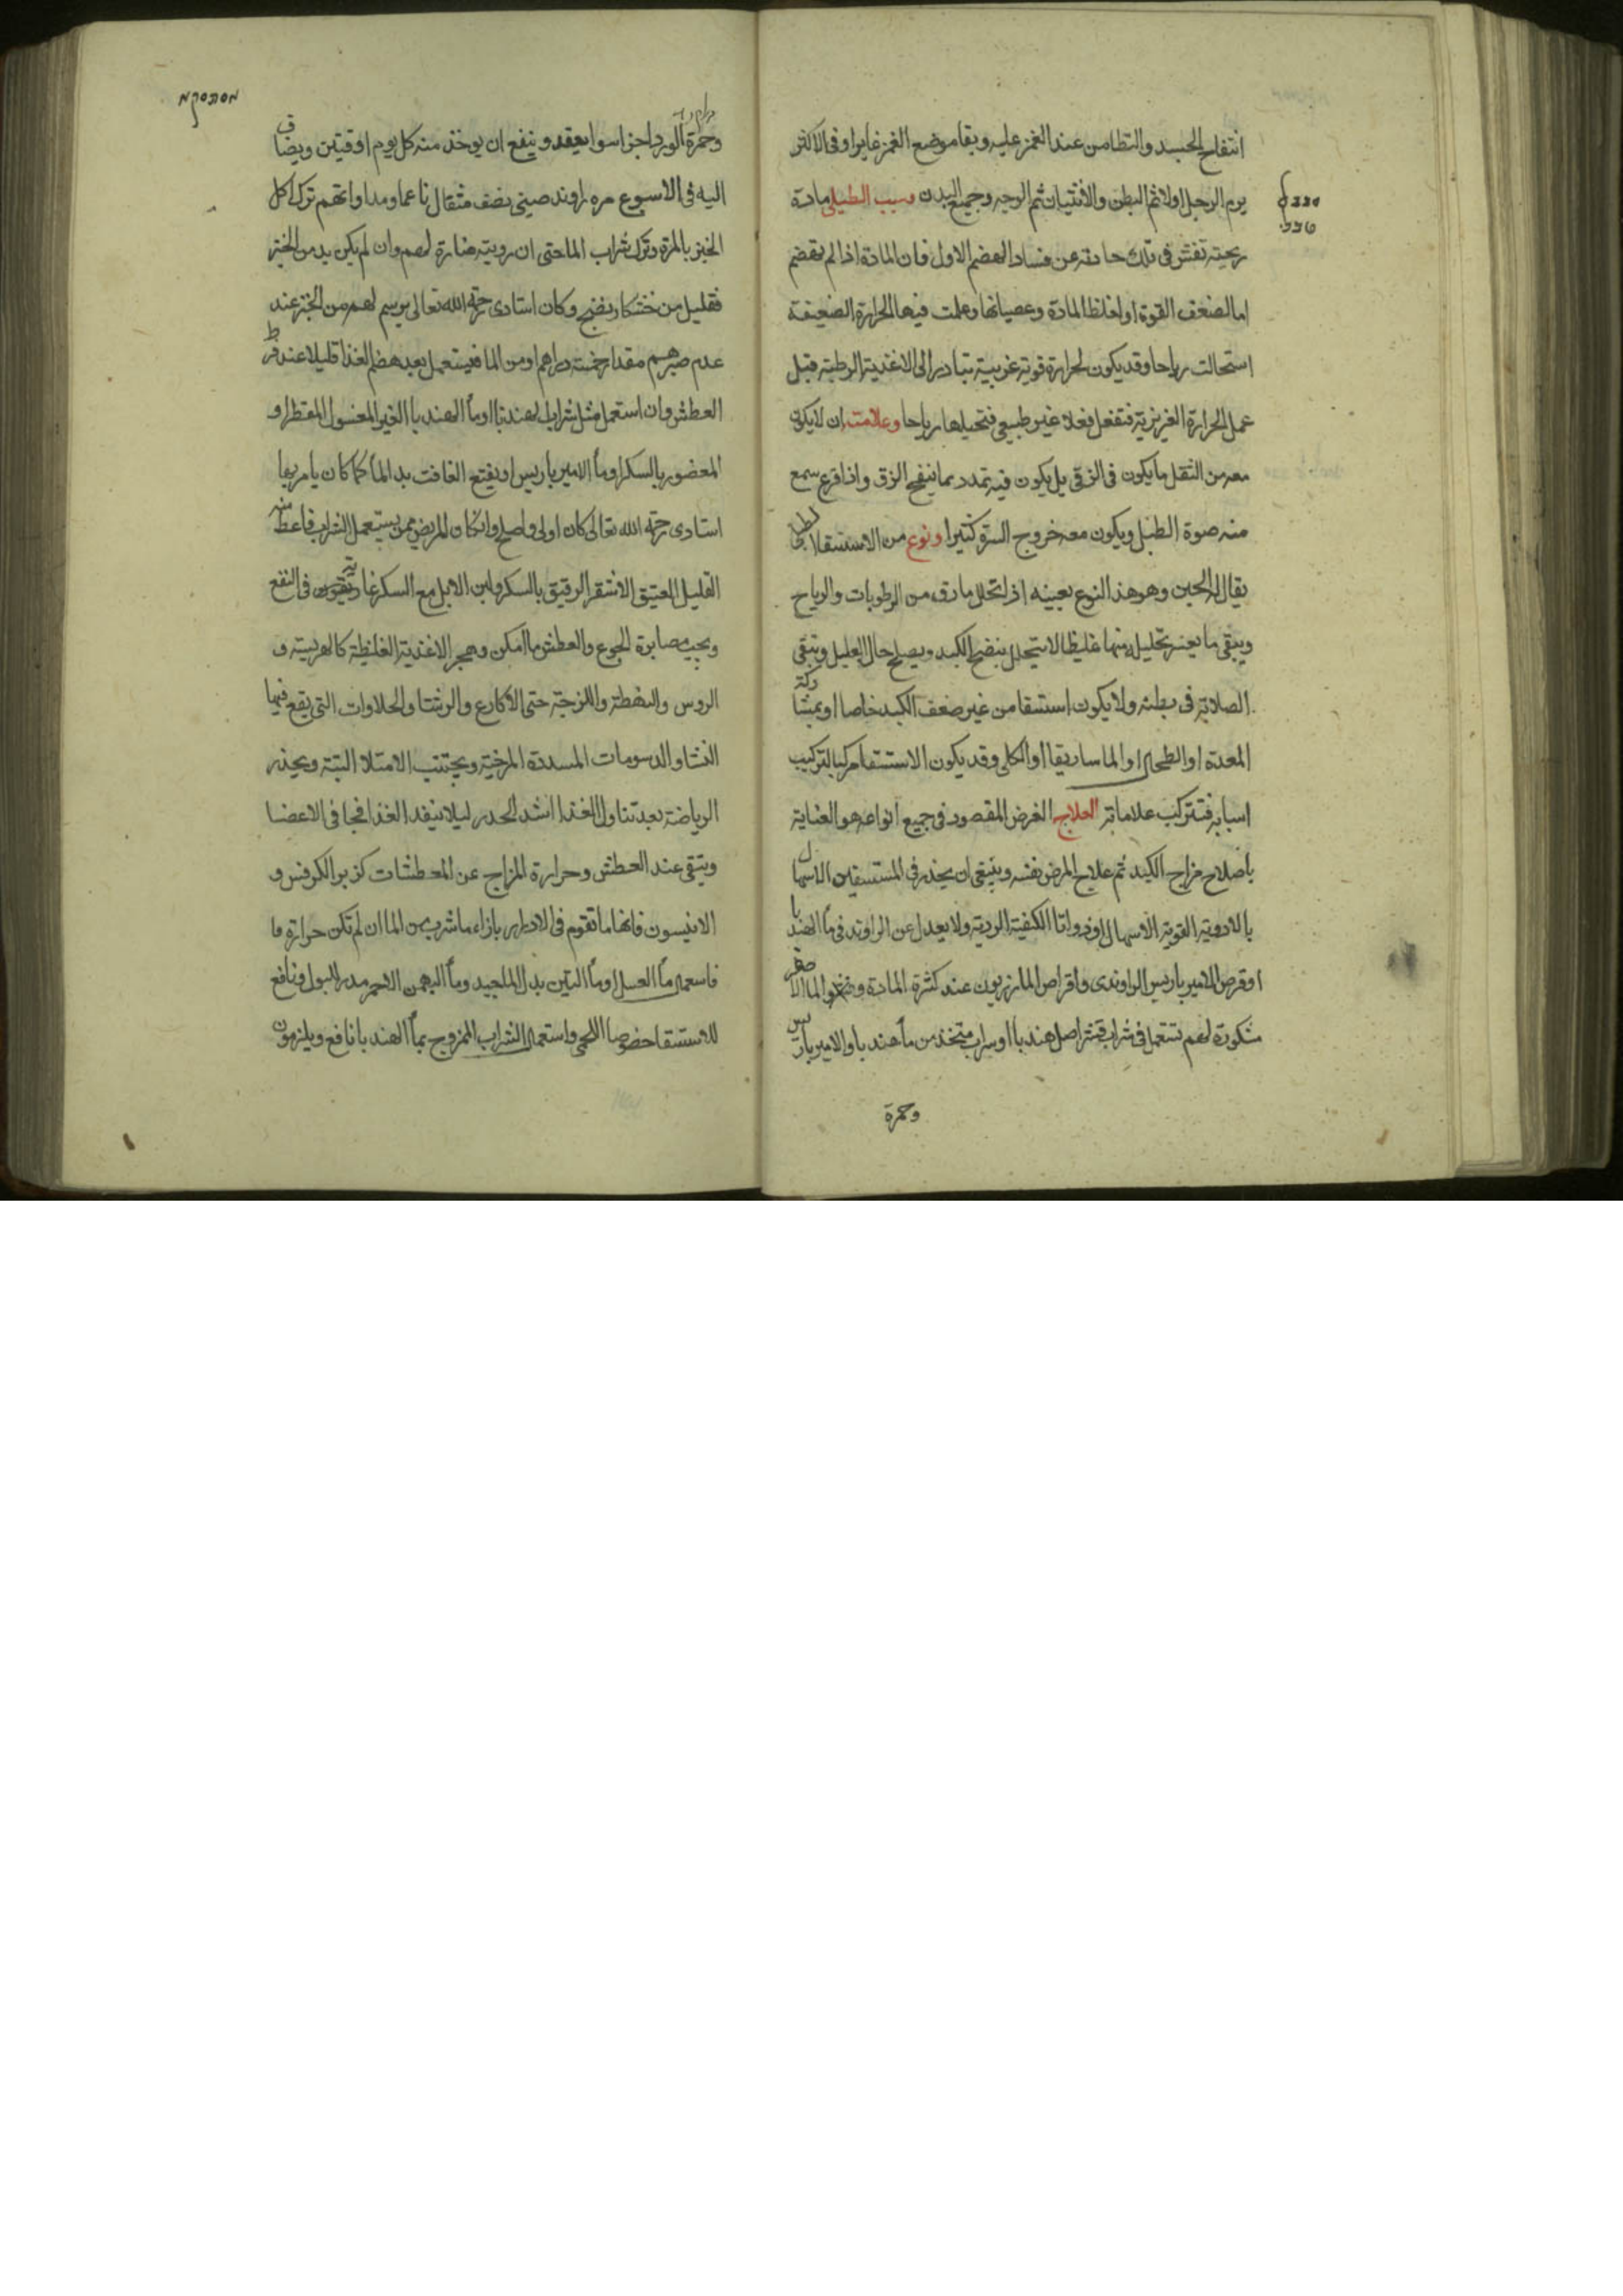 انتفاخ الجسد والتطامن عند الغمز عليه وبقا موضع الغمز غايرا وفى الاكثر
يرم الرجل اولا ثم البطن والانثيان ثم الوجه وجميع البدن وسبب الطبلى مادة
ريحية تفش فى تلك حادثه عن فساد الهضم الاول فان المادة اذا لم تهضم
اما لضعف القوة او لغلظ المادة وعصيانها وعملت فيها الحرارة الضعيفة
استحالت رياحا وقد يكون لحرارة قوية غريبية تبادر الى الاغذية الرطبة قبل
عمل الحرارة الغريزية فتفعل فعلا غير طبيعى فتحيلها رياحا وعلامته ان لا يكون
معه من الثقل ما يكون فى الزقى بل يكون فيه تمدد مما ينفخ الزق واذا قرع سمع
منه صوة الطبل ويكون معه خروج السرة كثيرا ونوع من الاستسقا
يقال له الحبن وهو هذا النوع بعينه اذا تحلل ما رق من الرطوبات والرياح
ويبقى ما يعسر تحليله منها غليظا لا يتحلل بنضج الكبد ويصلح حال العليل وتبقى
الصلابة فى بطنه ولا يكون استسقا من غير ضعف الكبد خاصا او بمشاركة
المعدة او الطحال او الماساريقا او الكلى وقد يكون الاستسقا مركبا لتركيب
اسبابه فتتركب علاماته العلاج الغرض المقصود فى جميع انواعه هو العناية
باصلاح مزاج الكبد ثم علاج المرض نفسه وينبغى ان يحذر فى المستسقين الاسهال
بالادوية القوية الاسهال او ذوات الكفية الردية ولا يعدل عن الراوند فى مآ الهندبا
او قرص الامير باريس الراوندى واقراص المازريون عند كثرة المادة المآ الاصفر
شكوتة لهم تستعمل فى شراب قشر اصل هندبا او شراب متخذ من مآ هندبا والامير باريس
وحمرة
מסתסקא
وحمرة الورد اجزا سوا يعقد وينفع ان يوخذ منه كل يوم اوقيتين ويضاف
اليه فى الاسبوع مره راوند صينى نصف مثقال ناعما ومداواتهم ترك اكل
الخبز بالمرة وترك شراب الما حتى ان رويته ضارة لهم وان لم يكن بد من الخبز
فقليل من خشكار نضيج وكان استادى رحمه الله تعالى يرسم لهم من الخبز عند
عدم صبرهم مقدار خمسة دراهم ومن الما فيستعمل بعد هضم الغذا قليلا عند فرط
العطش وان استعمل مثل شراب الهندبا او مآ الهندبا الغير المغسول المقطر او
المعصور بالسكر او مآ الامير باريس او نقيع الغافت بدل المآ كما كان يامر بها
استادى رحمه الله تعالى كان اولى واصلح وان كان المريض ممن يستعمل الشراب فاعطه منه
القليل العتيق الاشقر الرقيق بالسكر ولبن الابل مع السكر فى النفع
ويجب مصابرة الجوع والعطش ما امكن وهجر الاغذية الغليظة كالهريسة و
الروس واللزجة حتى الاكارع والرشتا والحلاوات التى يقع فيها
النشا والدسومات المسددة المرخية ويجتنب الامتلا البتة ويحذر
الرياضة بعد تناول الغذا اشد الحذر ليلا ينفد الغذا فجا فى الاعضا
ويتقى عند العطش وحرارة المزاج عن المعطشات كزبر الكرفس و
الانيسون فانها ما تقوم فى الادرار بازاء ما شرب من الما ان لم تكن حرارة فا
فاستعمال مآ العسل او مآ التين بدل الما جيد ومآ البهمن الاحمر مدر للبول ونافع
للاستسقا خصوصا اللحمى واستعمال الشراب الممزوج بمآ الهندبا نافع ويلزمون